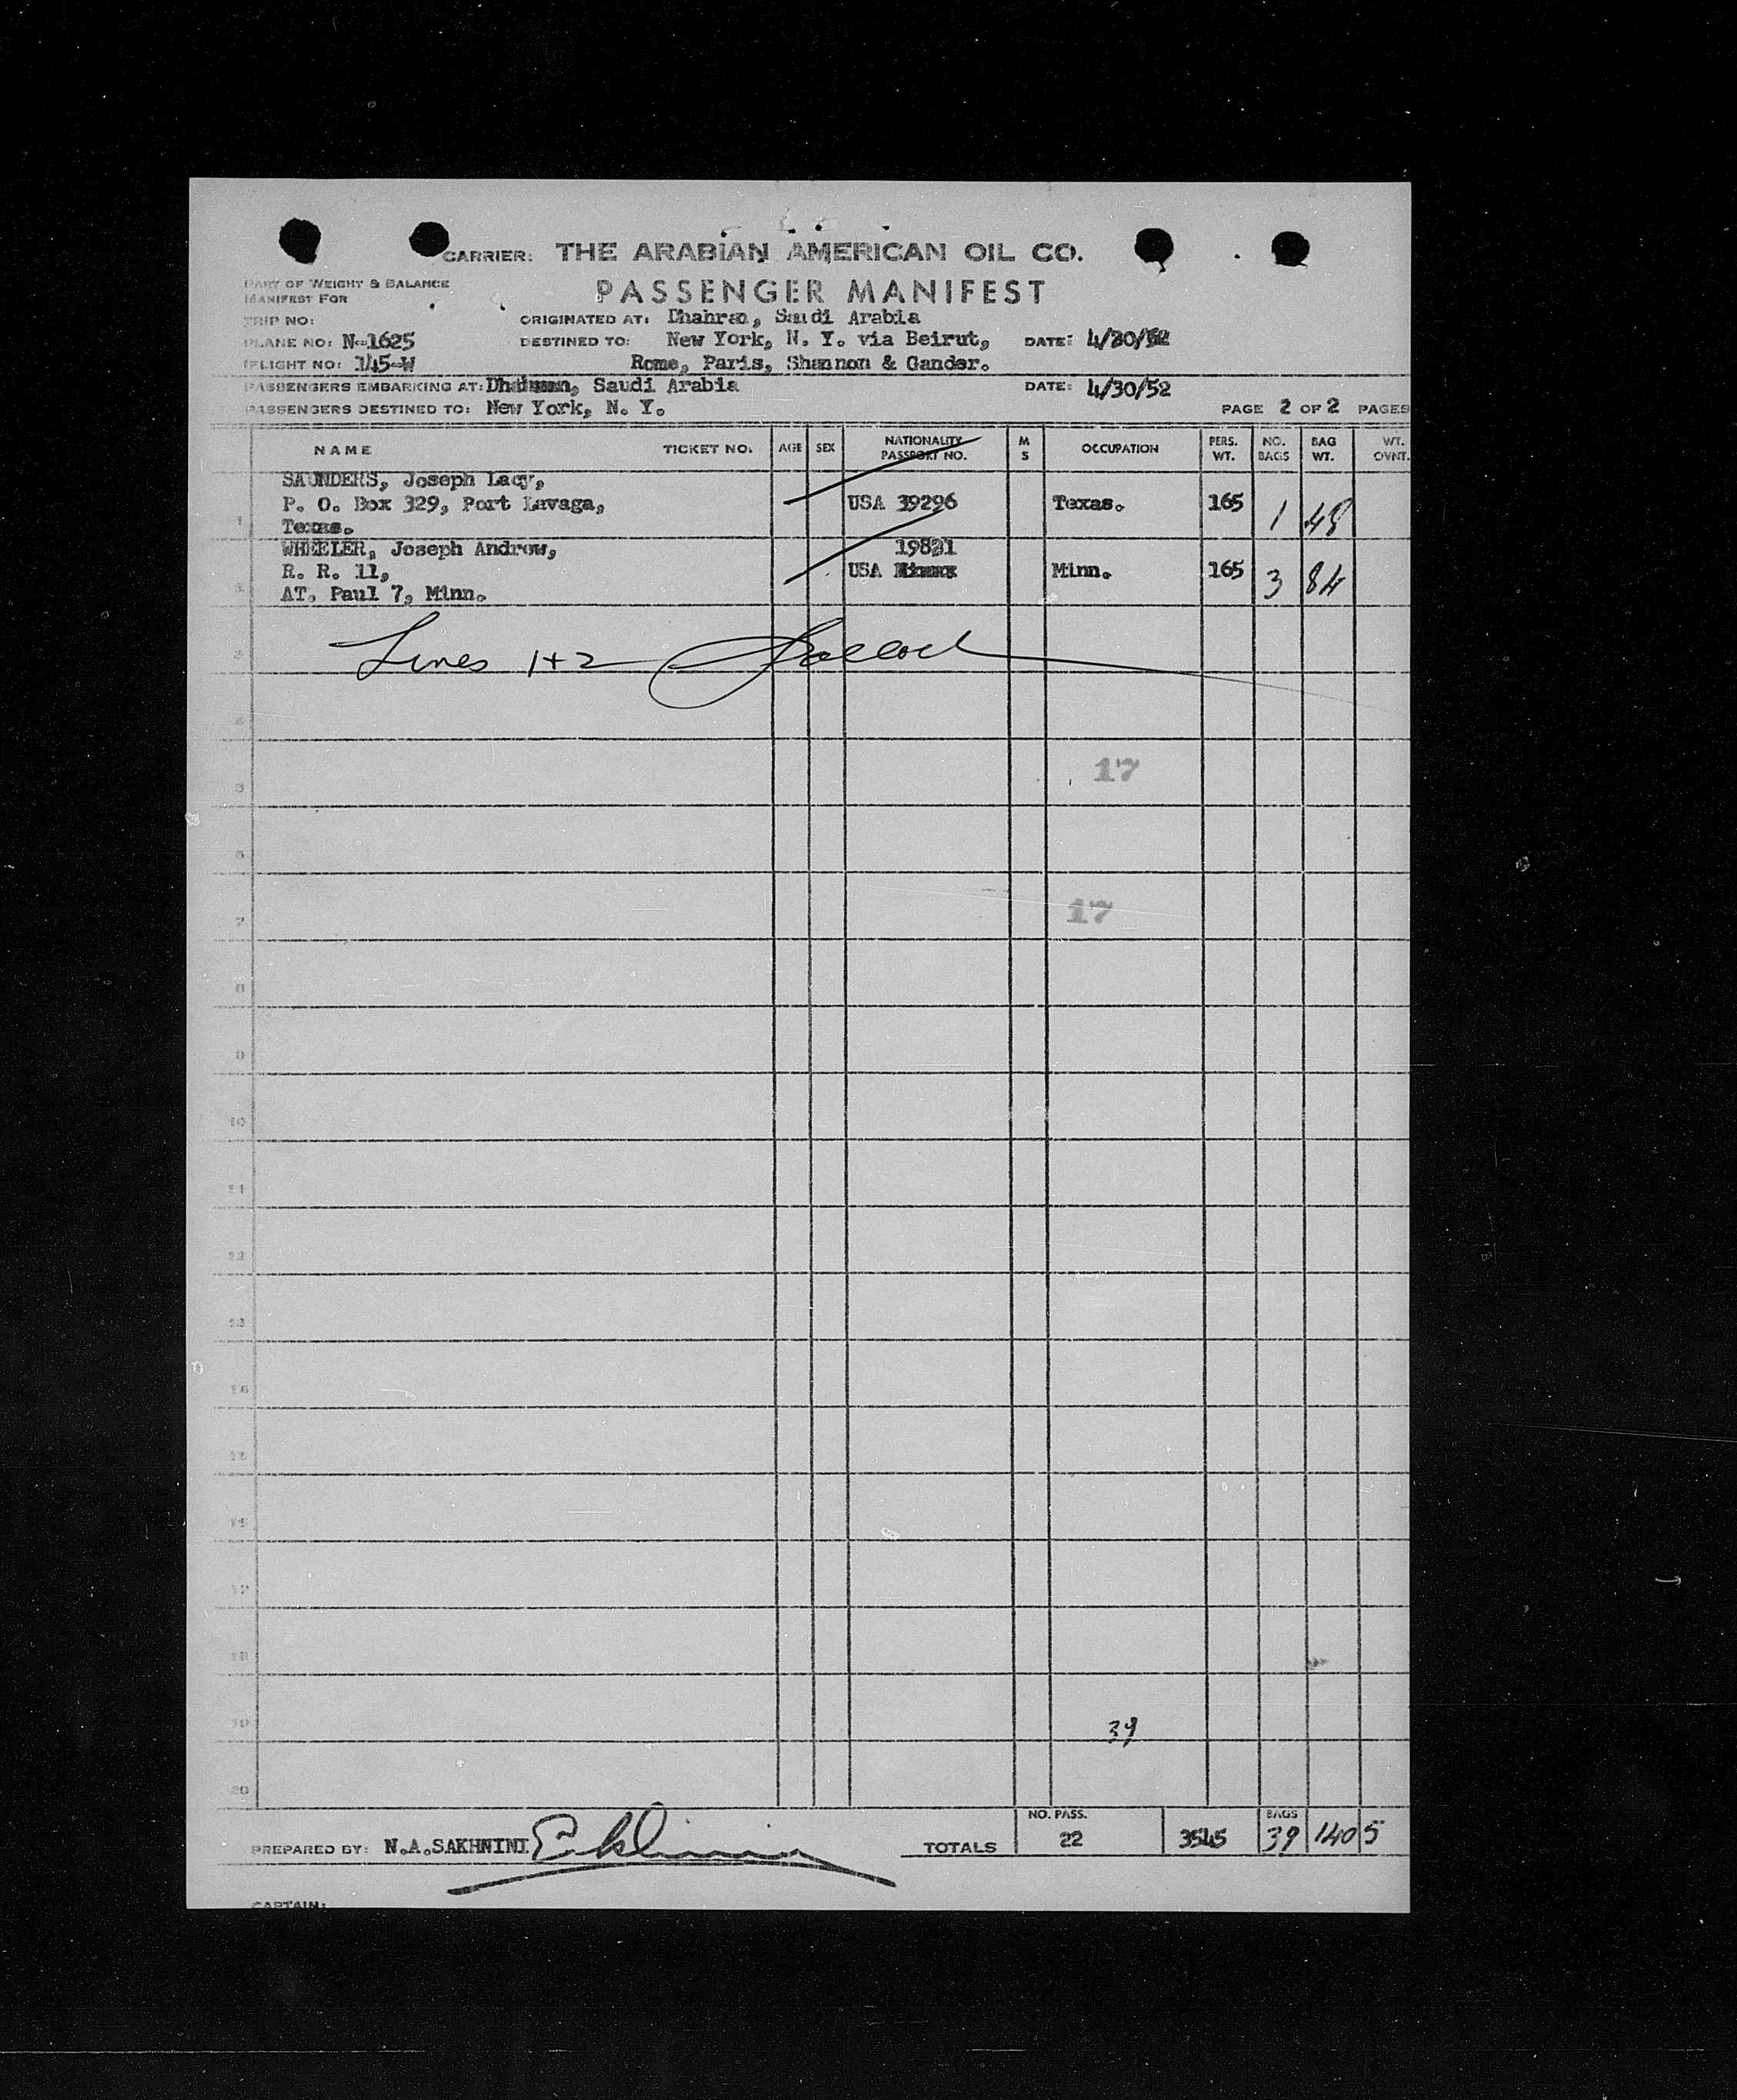 CARRIER: THE ARABIAN AMERICAN OIL CO.
PART OF WEIGHT & BALANCE
MANIFEST FOR
PASSENGER MANIFEST
TRIP NO:
ORIGINATED AT: Dhahran, Saudi Arabia
PLANE NO: N-1625
DESTINED TO: New York, N. Y. via Beirut, DATE: 4/30/52
FLIGHT NO: 145-W
Rome, Paris, Shannon & Gander.
PASSENGERS EMBARKING AT: Dhahran, Saudi Arabia DATE: 4/30/52
PASSENGERS DESTINED TO: New York, N. Y. PAGE 2 OF 2 PAGES
NAME TICKET NO. AGE SEX NATIONALITY PASSPORT NO. M S OCCUPATION PERS. WT. NO. BAGS BAG WT. WT. OVNT.
SAUNDERS, Joseph Lacy,
P. O. Box 329, Port Lavaga, USA 39296 Texas. 165 1 48
1 Texas.
WHEELER, Joseph Andrew, 19821
R. R. 11, USA Minn. 165 3 84
AT. Paul 7, Minn.
Lines 1+2
4
17
7
17
8
9
10
11
12
17
19
39
20
NO. PASS. BAGS
PREPARED BY: N.A.SAKHNINI TOTALS 22 3545 39 1405
CAPTAIN: